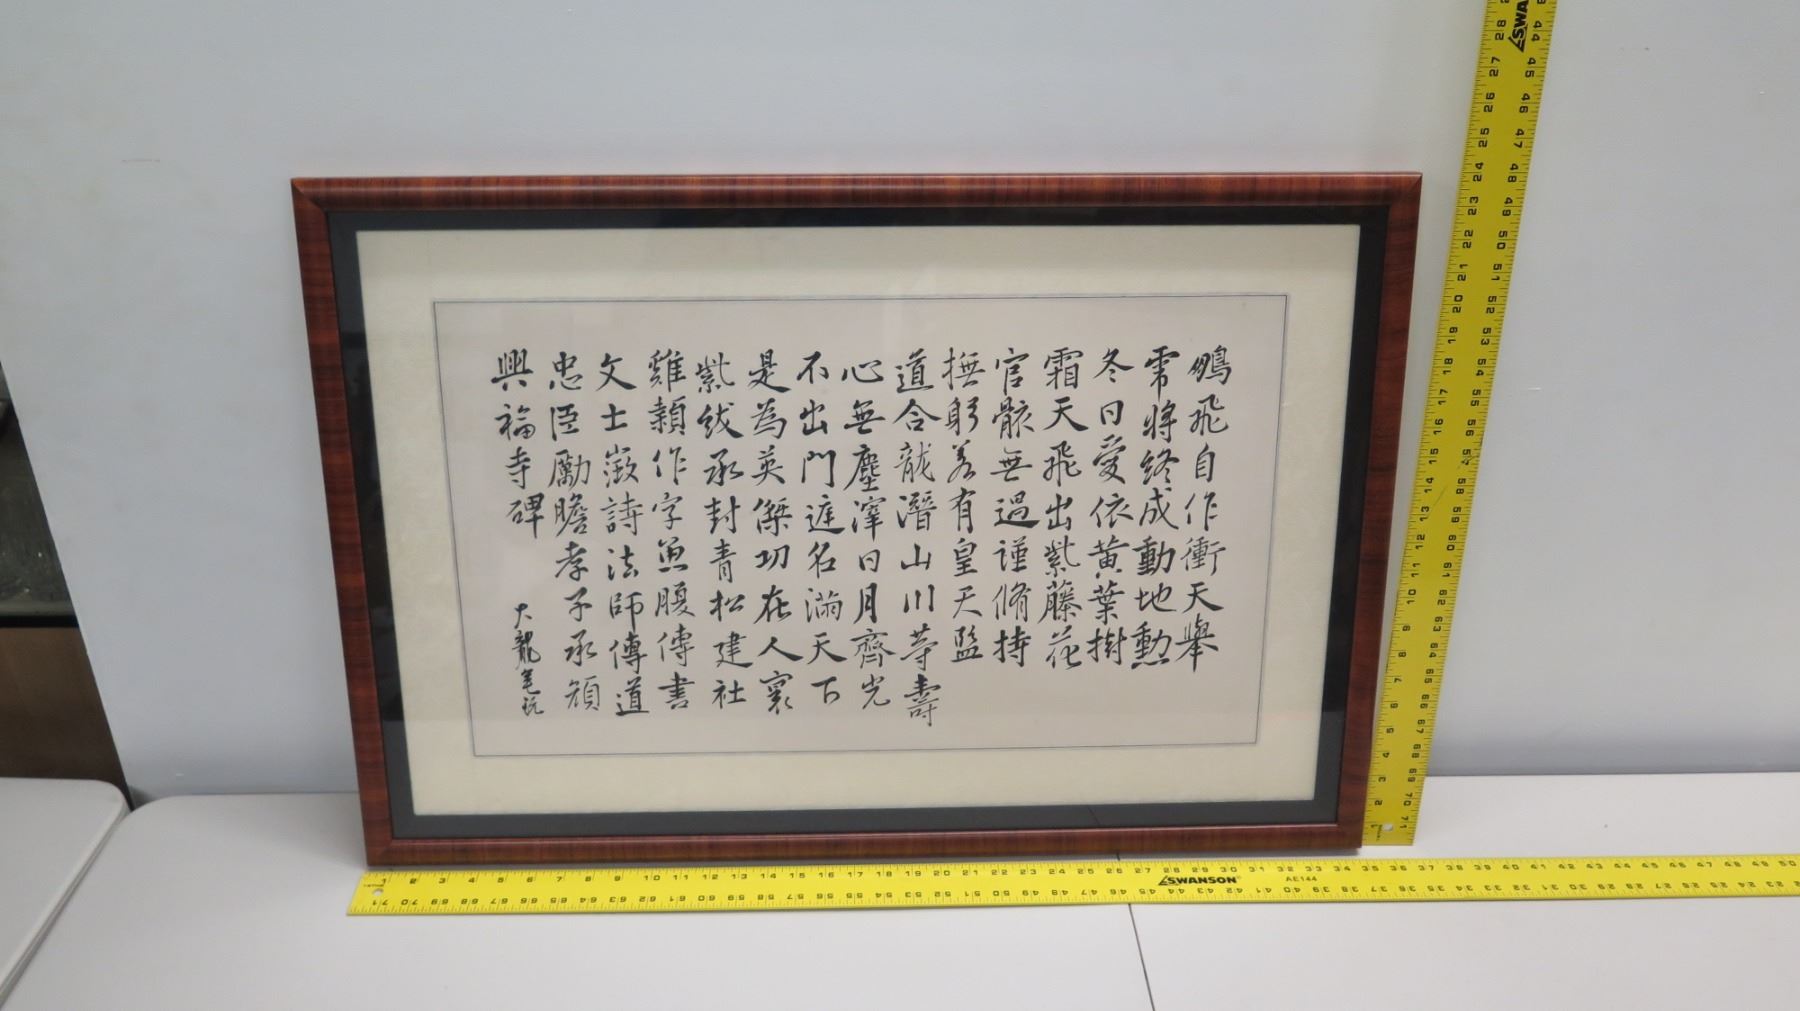 鵬飛自作衝天舉
將終成動地勲
冬日愛依黃葉樹
霜天飛出紫藤花
官骸無過謹脩持
撫躬若有皇天監
道合龍潛山川等壽
心無塵滓日月齊光
不出門庭名滿天下
是為英傑功在人寰
紫紱承封青松建社
雞穎作字傳書
文士徵詩法師傳道
忠臣勵膽孝子承顏
興福寺碑
大龍
SWANSON AE144